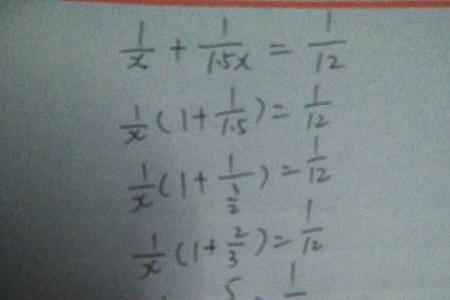 1/x + 1/1.5x = 1/12
1/x (1 + 1/1.5) = 1/12
1/x (1 + 1/(3/2)) = 1/12
1/x (1 + 2/3) = 1/12
5 1